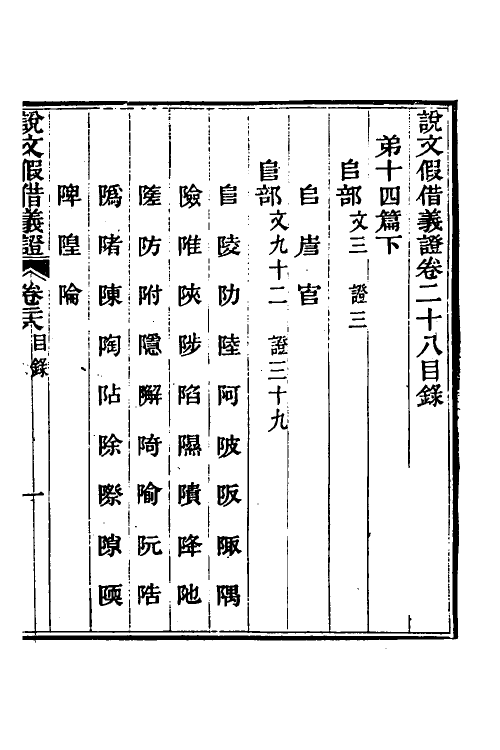 說文假借義證卷二十八目錄
弟十四篇下
𠂤部文三 證三
𠂤 𡴎 官
𨸏部文九十二 證三十九
𨸏 陵 阞 陸 阿 陂 阪 陬 隅
險 陮 陝 陟 陷 隰 隤 降 阤
隓 防 附 隱 𨼬 陭 隃 阮 䧊
䧦 陼 陳 陶 阽 除 際 隙 陾
陴 隍 陯
說文假借義證 卷二十八目錄 一